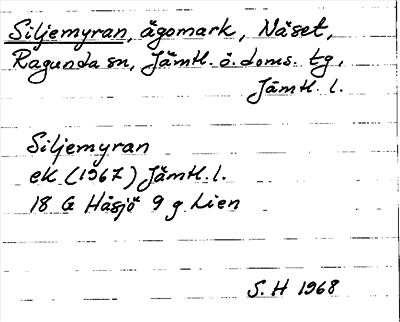 Siljemyran, ägomark, Näset,
Ragunda sn, Jämtl. ö. doms. tg,
Jämtl. l.
Siljemyran
ek (1967) Jämtl. l.
18 G Håsjö 9 g Lien
S. H 1968